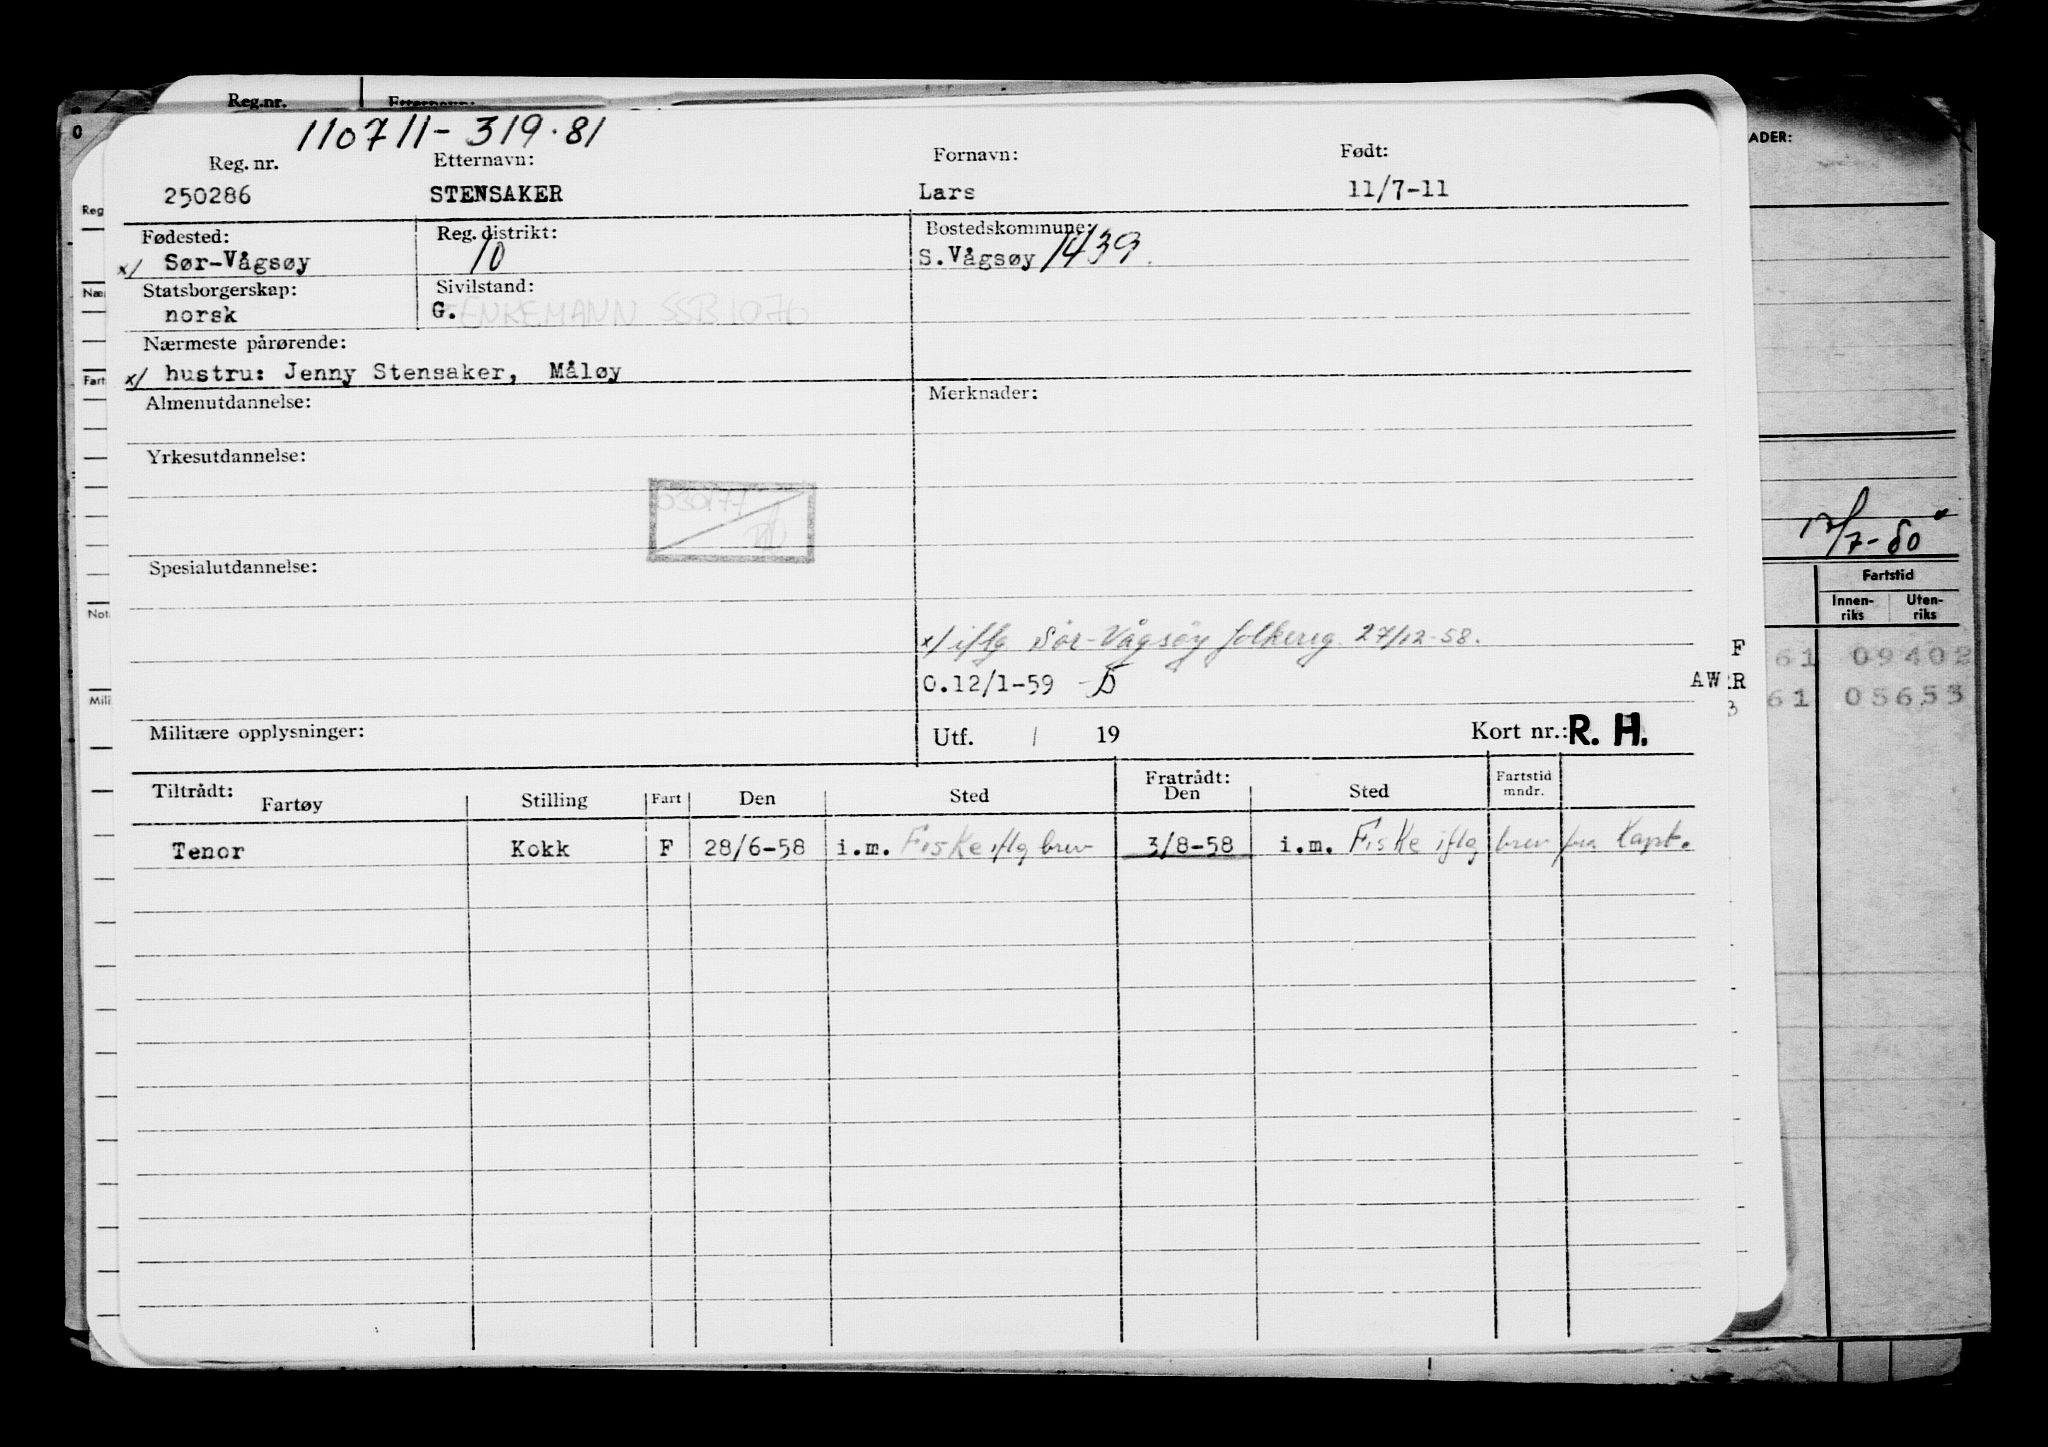 Reg.nr.
ADER:
110711-319.81
Reg. nr. Etternavn: Fornavn: Født:
250286 STENSAKER Lars 11/7-11
Fødested: Reg. distrikt: Bostedskommune:
x/ Sør-Vågsøy 10 S.Vågsøy 1439.
Statsborgerskap: Sivilstand:
norsk G. ENKEMANN SSB 1076
Nærmeste pårørende:
x/ hustru: Jenny Stensaker, Måløy
Almenutdannelse: Merknader:
Yrkesutdannelse:
Spesialutdannelse:
x/ iflg Sør-Vågsøy folkereg. 27/12-58.
0.12/1-59
Militære opplysninger: Utf. / 19 Kort nr.: R. H.
Tiltrådt: Fratrådt:
Fartøy Stilling Fart Den Sted Den Sted Fartstid mndr.
Tenor Kokk F 28/6-58 i.m. Fiske iflg brev 3/8-58 i.m. Fiske iflg brev fra Kapt.
Reg
Fart
Mili
17/7-80
Fartstid
Innen- Uten-
riks riks
F
61 09402
AW RR
61 05653